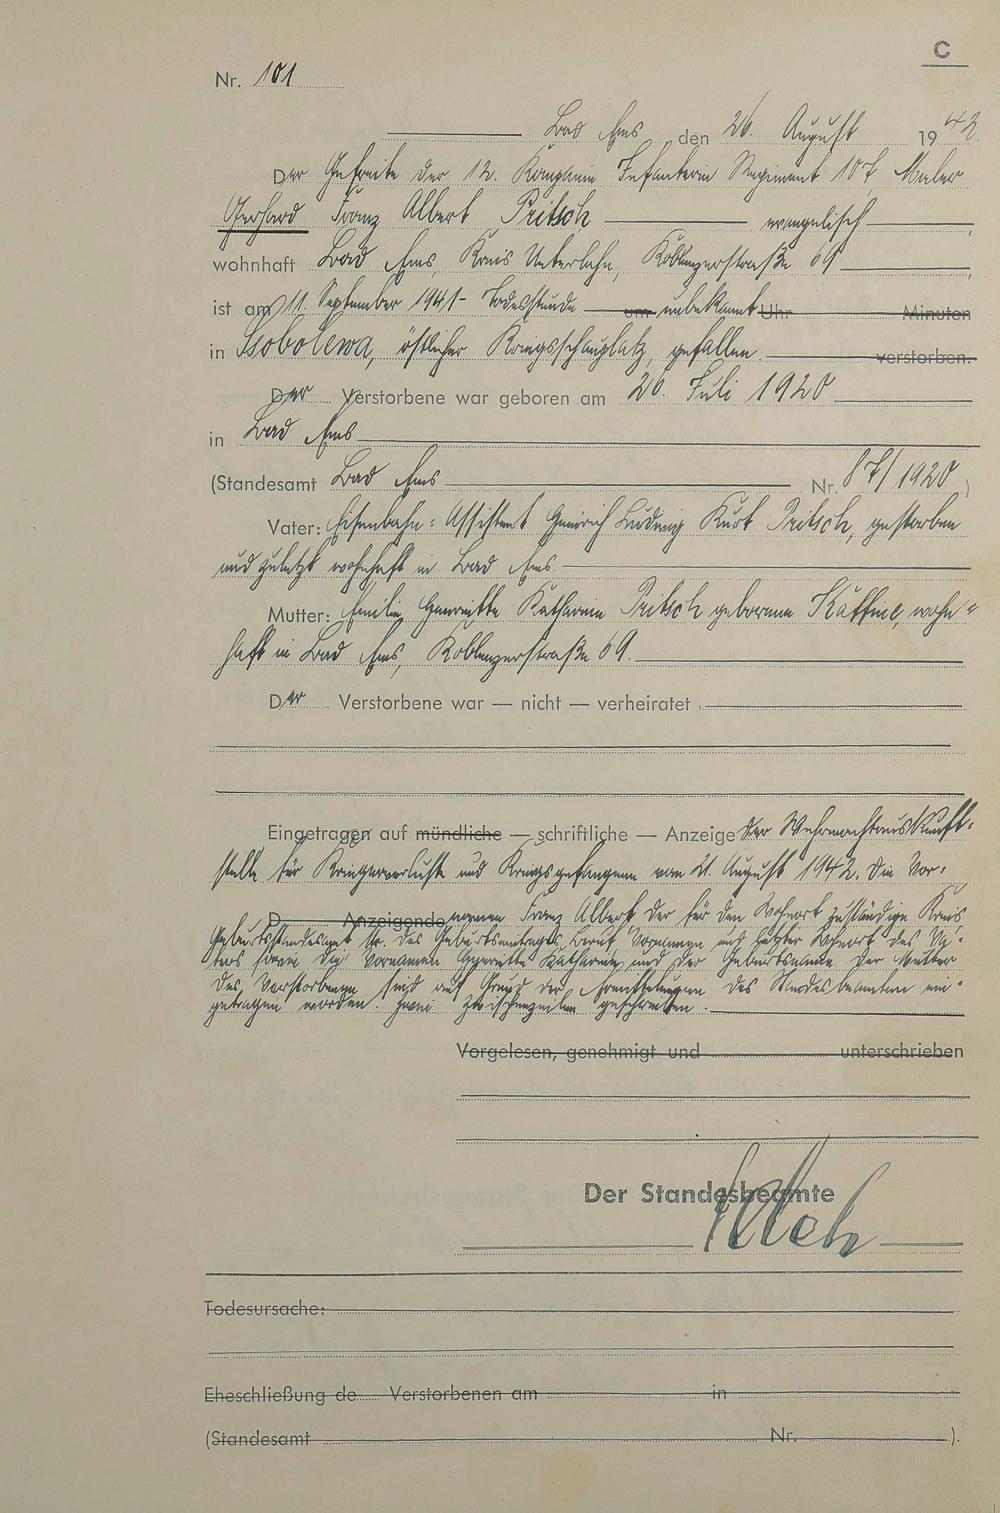 C
Nr. 101
Bad Ems den 26. August 1942
Der Gefreite der 12. Kompanie Infanterie Regiment 107, Maler
Gerhard Franz Albert Pritsch evangelisch,
wohnhaft Bad Ems, Kreis Unterlahn, Koblenzerstraße 69,
ist am 11. September 1941 - Todesstunde um unbekannt Uhr Minuten
in Ssobolewa, östlicher Kriegsschauplatz, gefallen. verstorben.
Der Verstorbene war geboren am 26. Juli 1920
in Bad Ems
(Standesamt Bad Ems Nr. 87/1920)
Vater: Eisenbahn-Assistent Heinrich Ludwig Kurt Pritsch, gestorben
und zuletzt wohnhaft in Bad Ems.
Mutter: Emilie Henriette Katharina Pritsch geborene Kaffine, wohn-
haft in Bad Ems, Koblenzerstraße 69.
Der Verstorbene war — nicht — verheiratet
Eingetragen auf mündliche — schriftliche — Anzeige der Wehrmachtauskunft-
stelle für Kriegerverluste und Kriegsgefangene vom 21. August 1942. Die Vor-
D Anzeigende namen Franz Albert der für den Wohnort zuständige Kreis
Geburtsstandesamt Nr. des Geburtseintrages, Beruf, Vornamen und letzter Wohnort des Va-
ters sowie die Vornamen Henriette Katharina und der Geburtsname der Mutter
des Verstorbenen sind auf Grund der Ermittelungen des Standesbeamten ein-
getragen worden. Zwei Zwischenzeilen geschrieben.
Vorgelesen, genehmigt und unterschrieben
Der Standesbeamte
Todesursache:
Eheschließung de Verstorbenen am in
(Standesamt Nr. ).